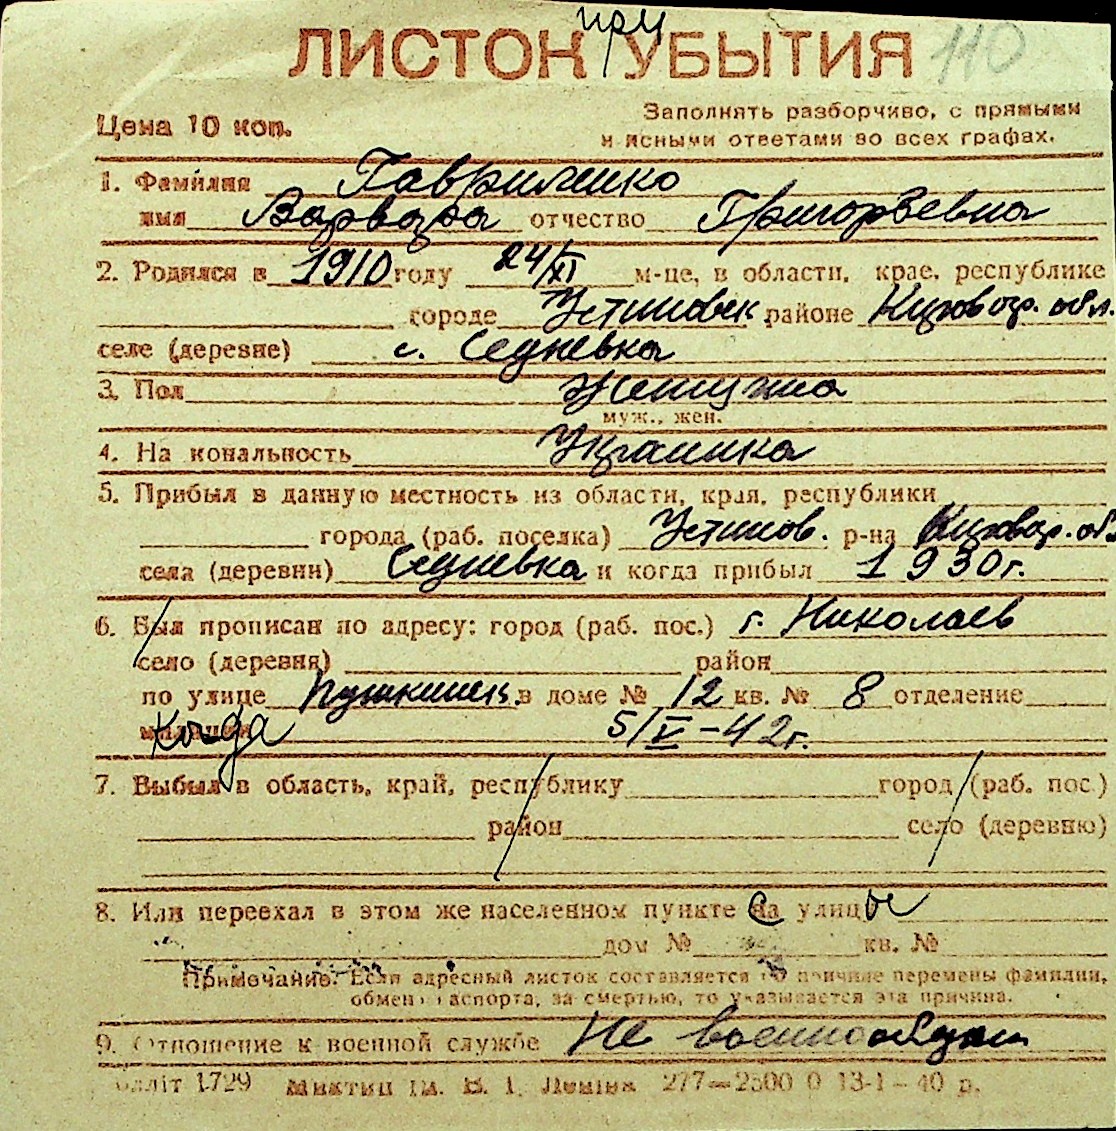 при
ЛИСТОК УБЫТИЯ 110
Цена 10 коп.
Заполнять разборчиво, с прямыми
и ясными ответами во всех графах.
1. Фамилия Гавриленко
имя Варвара отчество Григорьевна
2. Родился в 1910 году 24/XI м-це, в области, крае, республике
городе Устиновск. районе Кировогр. обл.
селе (деревне) с. Седневка
3. Пол Женщина
муж., жен.
4. Национальность Украинка
5. Прибыл в данную местность из области, края, республики
города (раб. поселка) Устинов. р-на Кировогр. обл
села (деревни) Седневка и когда прибыл 1930г.
6. Был прописан по адресу: город (раб. пос.) г. Николаев
село (деревня) район
по улице Пушкинск. в доме № 12 кв. № 8 отделение
милиции когда 5/V-42г.
7. Выбыл в область, край, республику город (раб. пос.)
район село (деревню)
8. Или переехал в этом же населенном пункте с улицы
дом № кв. №
Примечание. Если адресный листок составляется по причине перемены фамилии,
обмена паспорта, за смертью, то указывается эта причина.
9. Отношение к военной службе Не военнообязан
1729 ім. В. І. Леніна 277—2500 0 13-1-40 р.